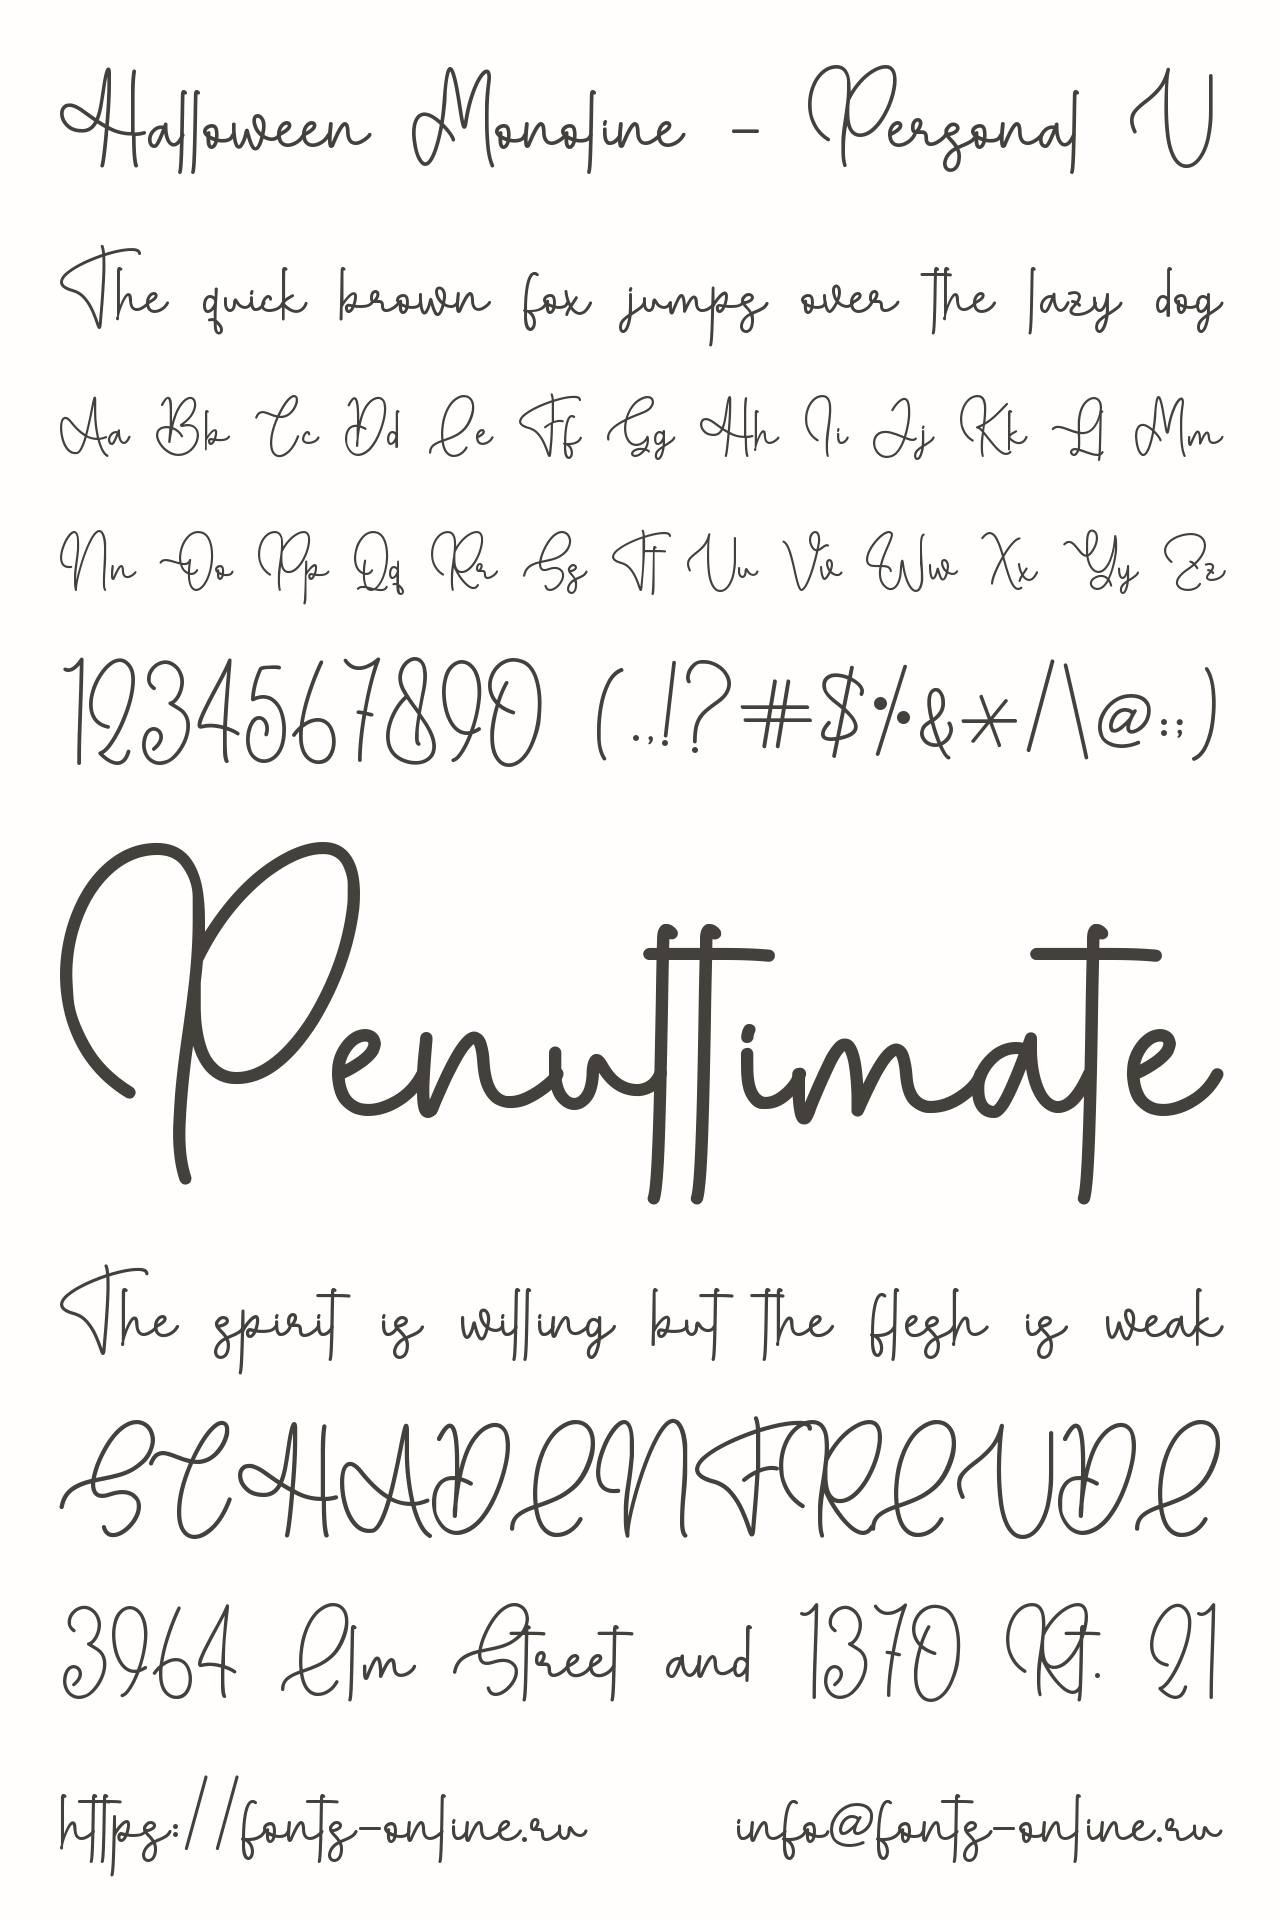 Halloween Monoline - Personal U
The quick brown fox jumps over the lazy dog
Aa Bb Cc Dd Ee Ff Gg Hh Ii Jj Kk Ll Mm
Nn Oo Pp Qq Rr Ss Tt Uu Vv Ww Xx Yy Zz
1234567890 (.,!?#$%&*/\@:;)
Penultimate
The spirit is willing but the flesh is weak
SCHADENFREUDE
3964 Elm Street and 1370 Rt. 21
https://fonts-online.ru info@fonts-online.ru